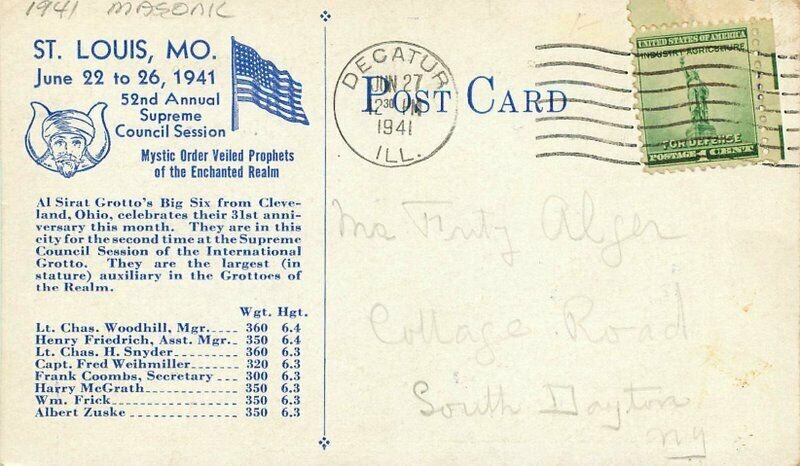 1941 MASONIC
ST. LOUIS, MO.
June 22 to 26, 1941
52nd Annual
Supreme
Council Session
Mystic Order Veiled Prophets
of the Enchanted Realm
Al Sirat Grotto's Big Six from Cleve-
land, Ohio, celebrates their 31st anni-
versary this month. They are in this
city for the second time at the Supreme
Council Session of the International
Grotto. They are the largest (in
stature) auxiliary in the Grottoes of
the Realm.
Wgt. Hgt.
Lt. Chas. Woodhill, Mgr. 360 6.4
Henry Friedrich, Asst. Mgr. 350 6.4
Lt. Chas. H. Snyder 360 6.3
Capt. Fred Weihmiller 320 6.3
Frank Coombs, Secretary 300 6.3
Harry McGrath 350 6.3
Wm. Frick 350 6.3
Albert Zuske 350 6.3
POST CARD
DECATUR
JUN 27
12 30 PM
1941
ILL.
UNITED STATES OF AMERICA
INDUSTRY AGRICULTURE
FOR DEFENSE
POSTAGE 1 CENT
Fritz Alger
Cottage Road
South Dayton
NY